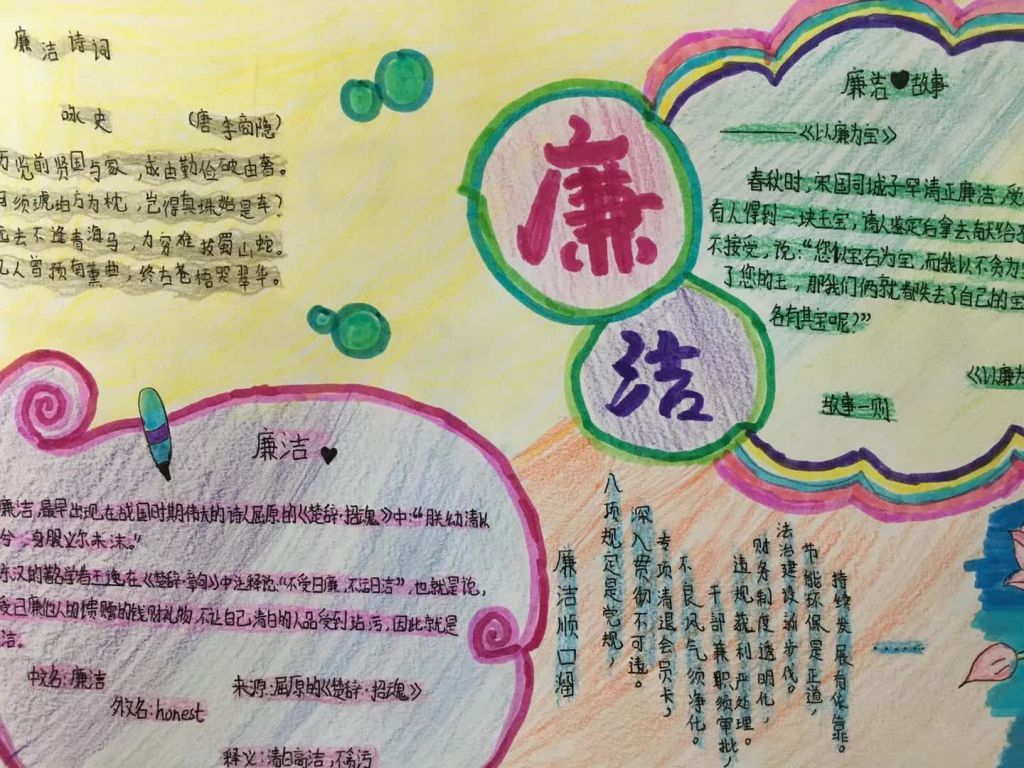 廉洁诗词
咏史
(唐 李商隐)
历览前贤国与家,成由勤俭破由奢。
何须琥珀方为枕,岂得真珠始是车?
远去不逢青海马,力穷难拔蜀山蛇。
几人曾预南熏曲,终古苍梧哭翠华。
廉洁
廉洁故事
——《以廉为宝》
春秋时,宋国司城子罕清正廉洁,受
有人得到一块玉宝,请人鉴定后拿去献给子
不接受,说:“您以宝石为宝,而我以不贪为
了您的玉,那我们俩就都失去了自己的宝
各有其宝呢?”
《以廉为
故事一则
廉洁
廉洁,最早出现在战国时期伟大的诗人屈原的《楚辞·招魂》中:“朕幼清以
兮,身服义尔未沫。”
东汉的著名学者王逸在《楚辞·章句》中注释说:“不受曰廉,不污曰洁”,也就是说,
受已廉他人的馈赠的钱财礼物,不让自己清白的人品受到玷污,因此就是
洁。
中文名:廉洁
来源:屈原的《楚辞·招魂》
外文名:honest
释义:清白高洁,不贪污
廉洁顺口溜
八项规定是党规,
深入贯彻不可违。
专项清退会员卡,
不良风气须净化。
干部兼职须审批,
违规获利严处理。
财务制度透明化,
法治建设新步伐。
节能环保是正道,
持续发展有依靠。